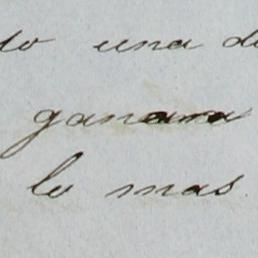 to una de
ganara
lo mas